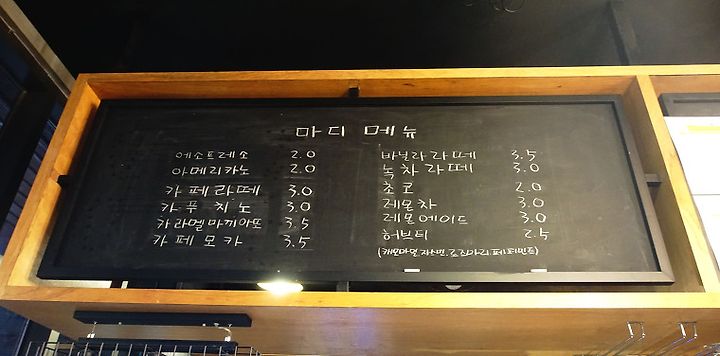 마디 메뉴
에소프레소 2.0
아메리카노 2.0
카페라떼 3.0
카푸치노 3.0
카라멜마끼아또 3.5
카페모카 3.5
바닐라라떼 3.5
녹차라떼 3.0
초코 2.0
레몬차 3.0
레몬에이드 3.0
허브티 2.5
(캐모마일.자스민.로즈마리.페퍼민트)